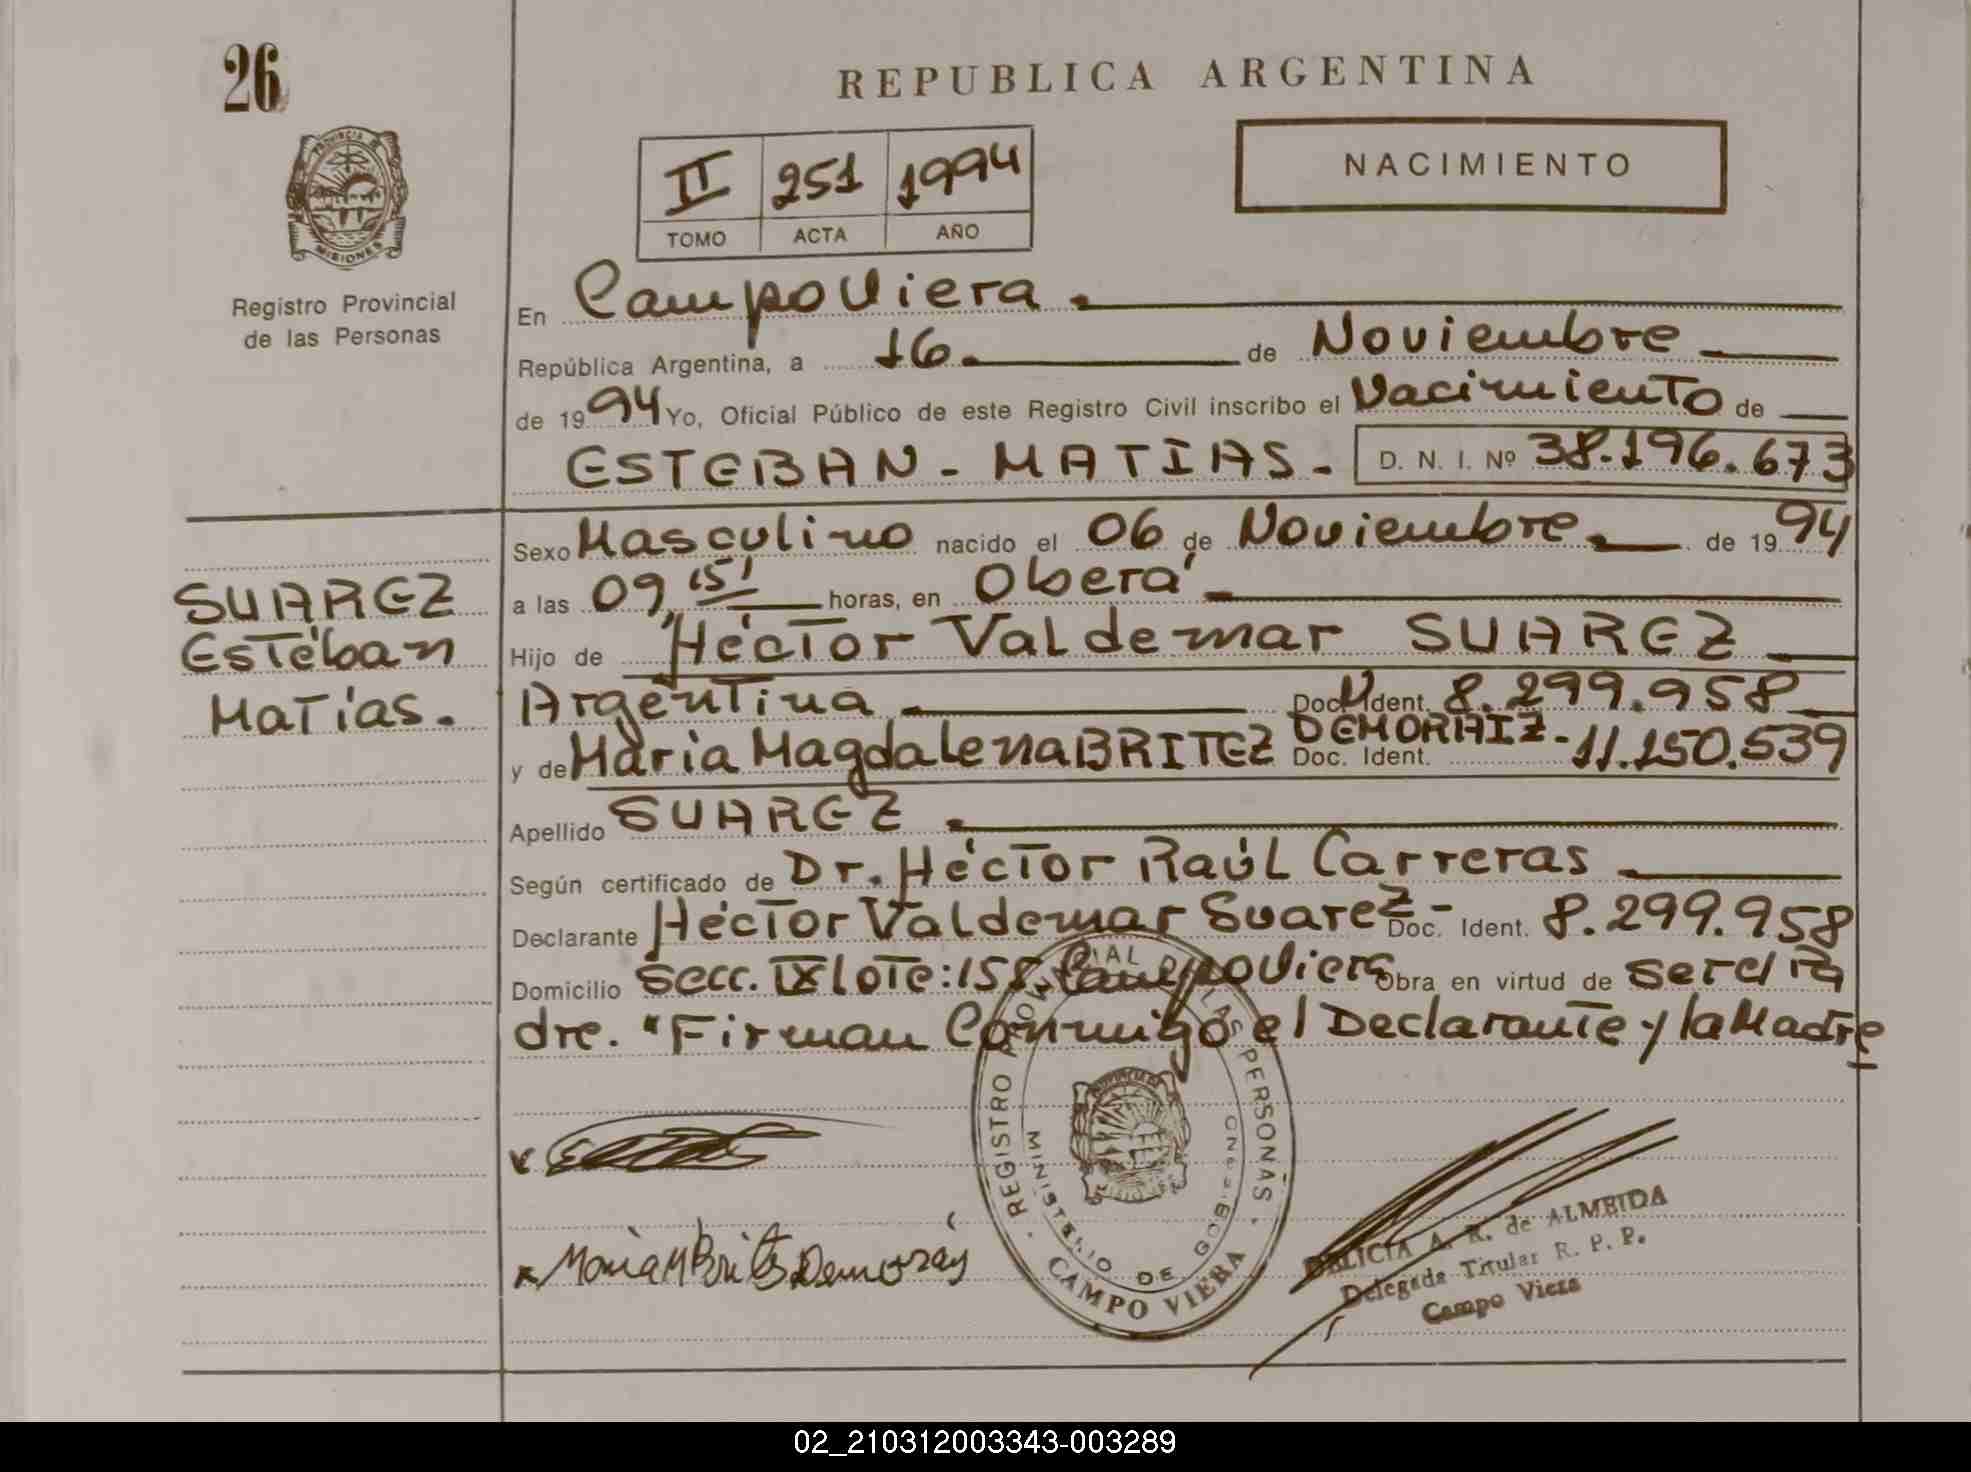 26
REPUBLICA ARGENTINA
II 251 1994
TOMO ACTA AÑO
NACIMIENTO
PROVINCIA DE
MISIONES
Registro Provincial
de las Personas
En Campo Viera.
República Argentina, a 16. de Noviembre
de 1994 Yo, Oficial Público de este Registro Civil inscribo el Nacimiento de
ESTEBAN - MATIAS. D. N. I. Nº 38.196.673
Sexo Masculino nacido el 06 de Noviembre. de 1994
a las 09,15' horas, en Oberá
Hijo de Héctor Valdemar SUAREZ
Argentina Doc. Ident. 8.299.958
y de María Magdalena BRITEZ DEMORAIZ - Doc. Ident. 11.150.539
Apellido SUAREZ.
Según certificado de Dr. Héctor Raúl Carreras
Declarante Héctor Valdemar Suarez - Doc. Ident. 8.299.958
Domicilio Secc. IX lote: 158 Campo Viera Obra en virtud de ser el Pa
dre. "Firman Conmigo el Declarante y la Madre
SUAREZ
Estéban
Matías.
REGISTRO PROVINCIAL DE LAS PERSONAS
MINISTERIO DE GOB
CAMPO VIERA
DELICIA A. R. de ALMEIDA
Delegada Titular R. P. P.
Campo Viera
02_210312003343-003289